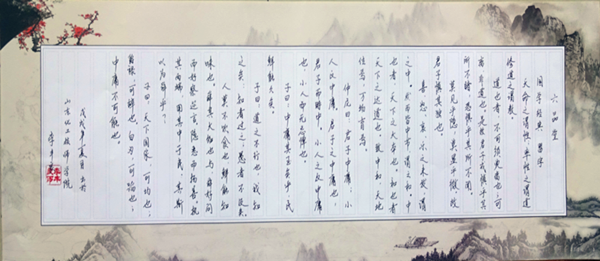 六品堂
国学经典
天命之谓性，率性之谓道
修道之谓教。
道也者，不可须臾离也，可
离非道也。是故君子戒慎乎其
所不睹，恐惧乎其所不闻。
莫见乎隐，莫显乎微，故
君子慎其独也。
喜怒哀乐之未发，谓
之中；发而皆中节，谓之和。中
也者，天下之大本也；和也者
天下之达道也。致中和，天地
位焉，万物育焉。
仲尼曰：君子中庸，小
人反中庸。君子之中庸也，
君子而时中；小人之反中庸
也，小人而无忌惮也。
子曰：中庸其至矣乎！民
鲜能久矣。
子曰：道之不行也，我知
之矣：知者过之，愚者不及
人莫不饮食也，鲜能知
味也。舜其大知也与！舜好问
而好察迩言，隐恶而扬善，执
其两端，用其中于民，其斯
以为舜乎！
子曰：天下国家，可均也；
爵禄，可辞也；白刃，可蹈也；
中庸不可能也。
戊戌年夏 书于
山东化工技师学院
李